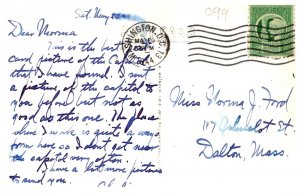 Sat. May 20
099
Dear Norma
This is the best
card picture of the Capitol
that I have found. I sent
a picture of the capitol to
you before but not as
good as this one. The place
where I work is quite a ways
from here so I don't get near
the capitol very often.
I have a lot more pictures
to send you.
WASHINGTON, D.C. 13
MAY
PM
1944
Miss Norma J. Ford
117 St.
Dalton, Mass.